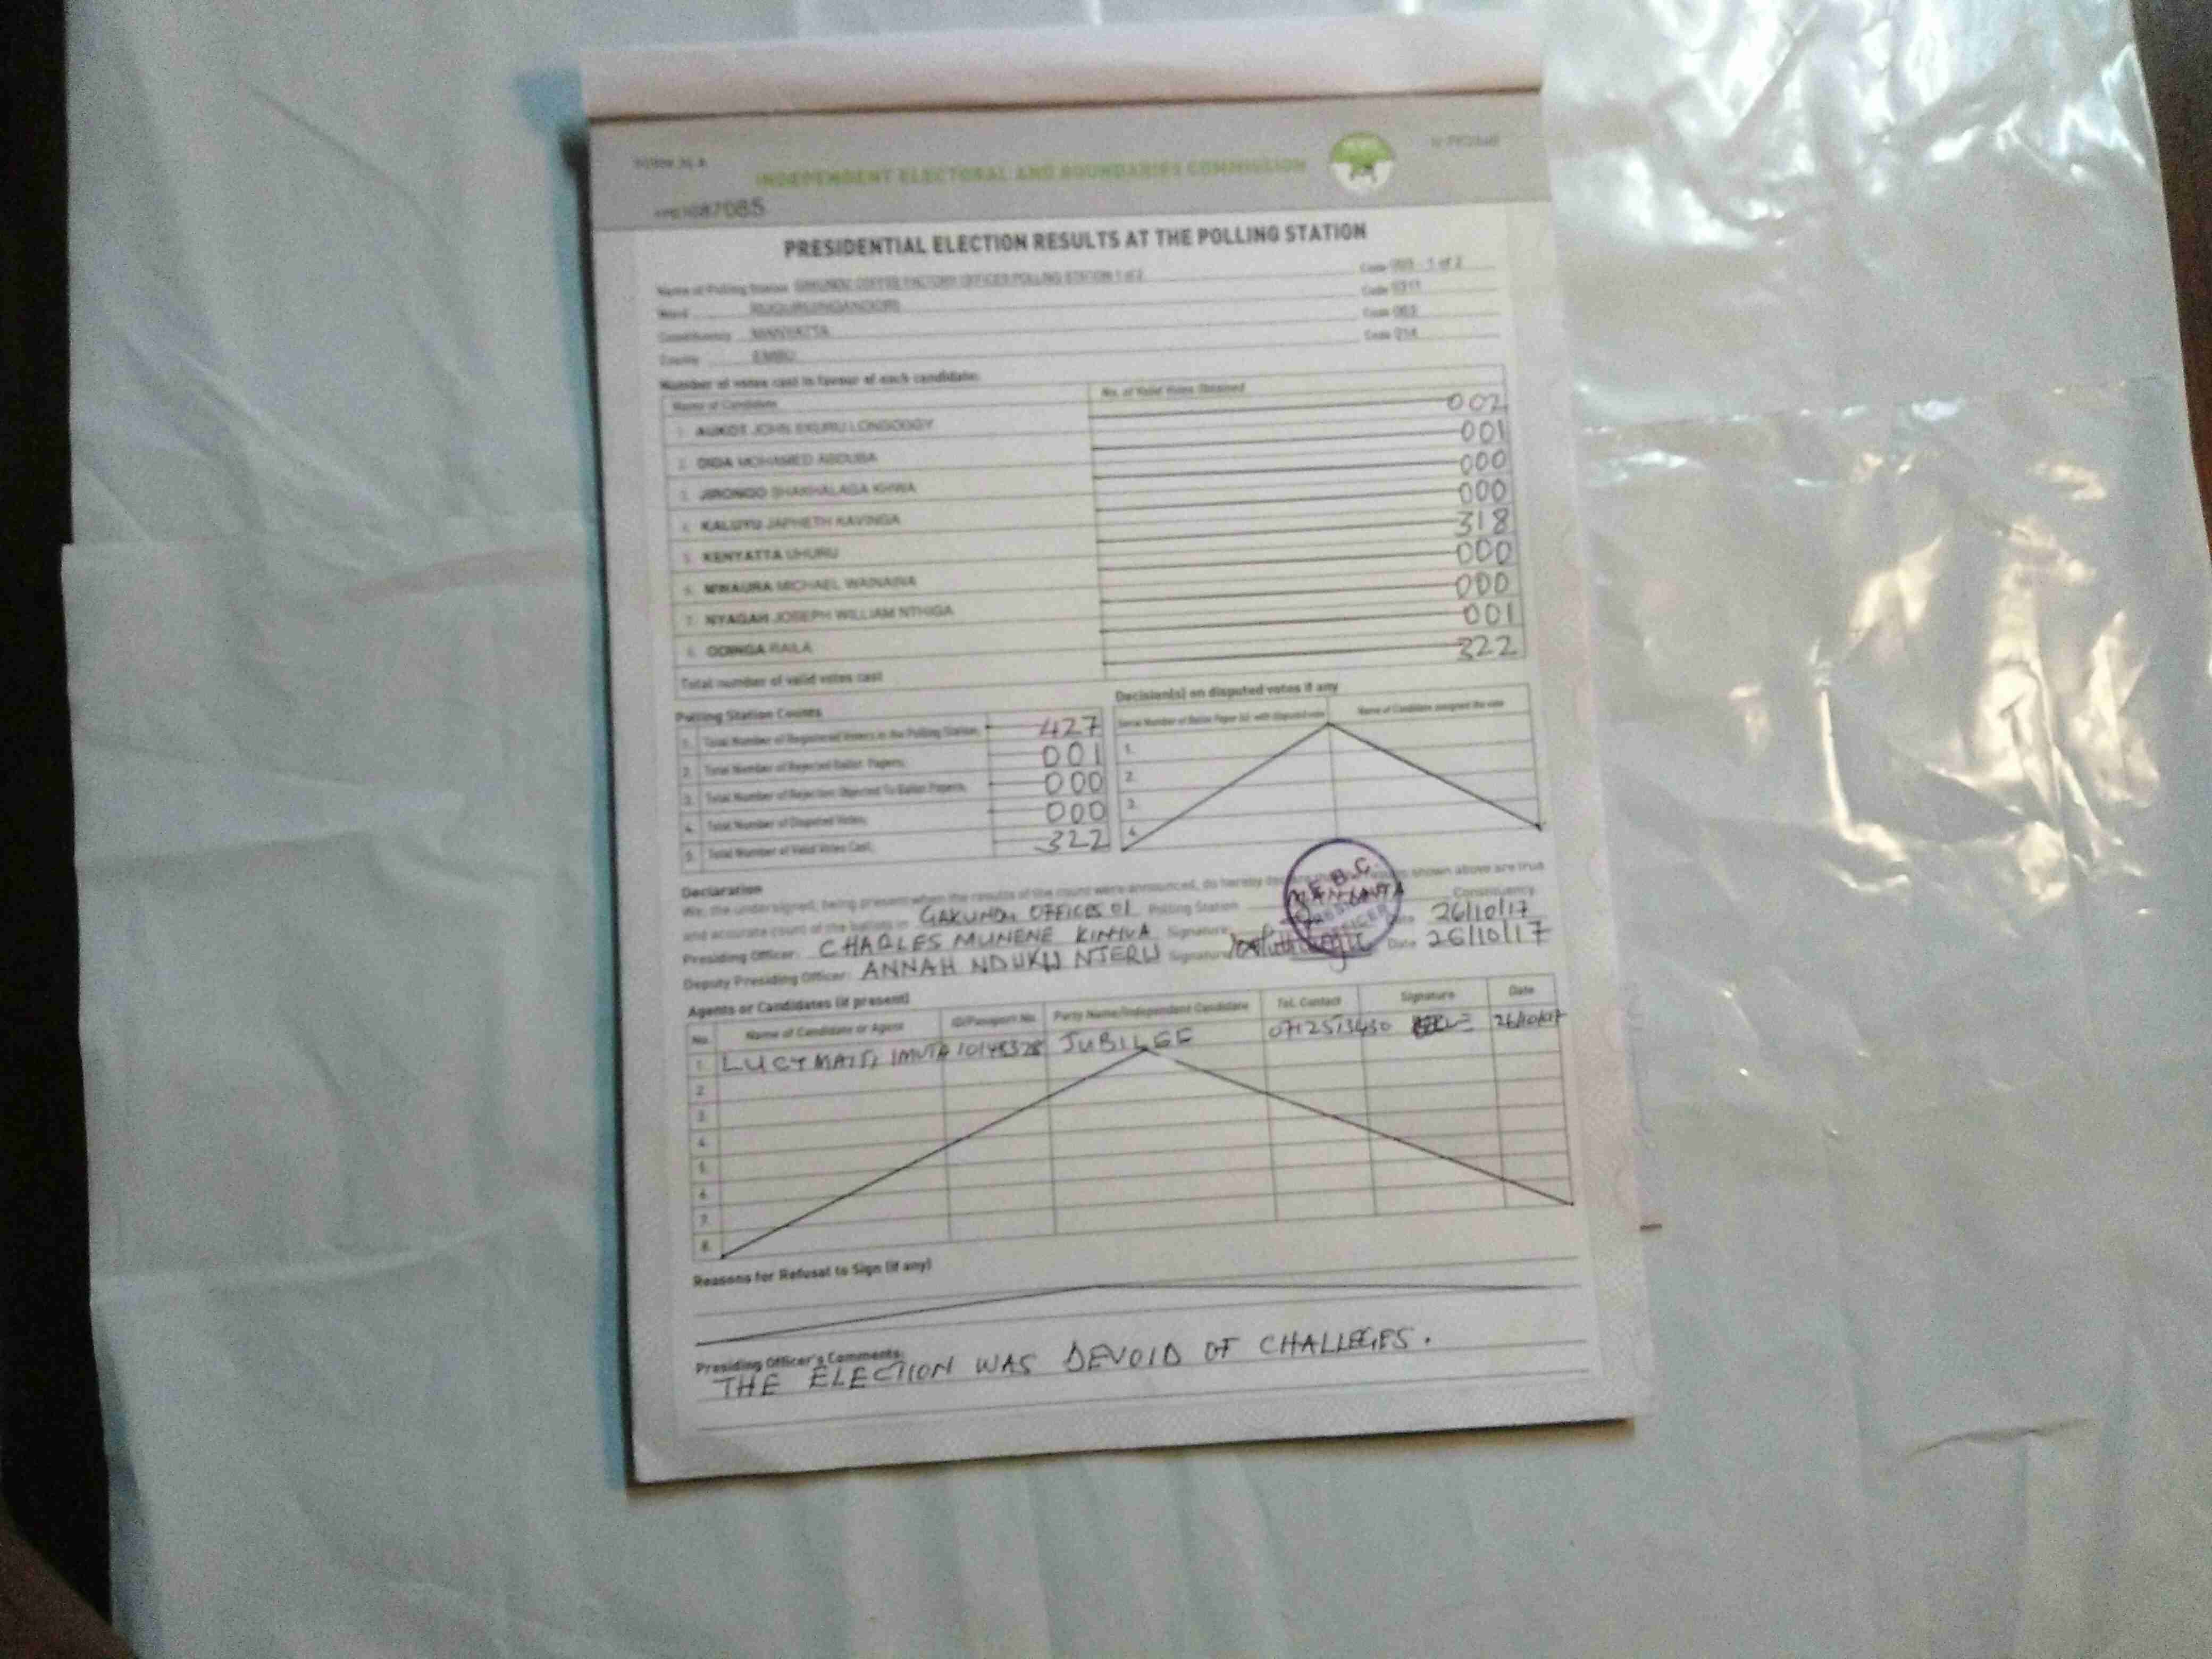 FORM 34 A
INDEPENDENT ELECTORAL AND BOUNDARIES COMMISSION
87085
PRESIDENTIAL ELECTION RESULTS AT THE POLLING STATION
Name of Polling Station COFFEE FACTORY OFFICES POLLING STATION 1 of 2 Code 1 of 2
Ward Code
Constituency MANYATTA Code
County EMBU Code 014
Number of votes cast in favour of each candidate:
Name of Candidate No. of Valid Votes Obtained
1. AUKOT JOHN EKURU LONGOGGY 002
2. DIDA MOHAMED ABDUBA 001
3. JIRONGO SHAKHALAGA KHWA 000
4. KALUYU JAPHETH KAVINGA 000
5. KENYATTA UHURU 318
6. MWAURA MICHAEL WAINAINA 000
7. NYAGAH JOSEPH WILLIAM NTHIGA 000
8. ODINGA RAILA 001
Total number of valid votes cast 322
Polling Station Counts
1. Total Number of Registered Voters in the Polling Station 427
2. Total Number of Rejected Ballot Papers 001
3. Total Number of Rejection Objected To Ballot Papers 000
4. Total Number of Disputed Votes 000
5. Total Number of Valid Votes Cast 322
Decision(s) on disputed votes if any
Serial Number of Ballot Paper (s) with disputed vote Name of Candidate assigned the vote
1.
2.
3.
4.
Declaration
We, the undersigned, being present when the results of the count were announced, do hereby shown above are true
and accurate count of the ballots in OFFICES 01 Polling Station MANYATTA Constituency
Presiding Officer: CHARLES MUNENE Signature: Date 26/10/17
Deputy Presiding Officer: ANNAH NDUKU NJERU Signature Date 26/10/17
I.E.B.C.
PRESIDING OFFICER
Agents or Candidates (if present)
No. Name of Candidate or Agent ID/Passport No. Party Name/Independent Candidate Tel. Contact Signature Date
1. LUCY 10148328 JUBILEE 0712513430 26/10/17
2.
3.
4.
5.
6.
7.
8.
Reasons for Refusal to Sign (if any)
Presiding Officer's Comments:
THE ELECTION WAS DEVOID OF CHALLEGES.